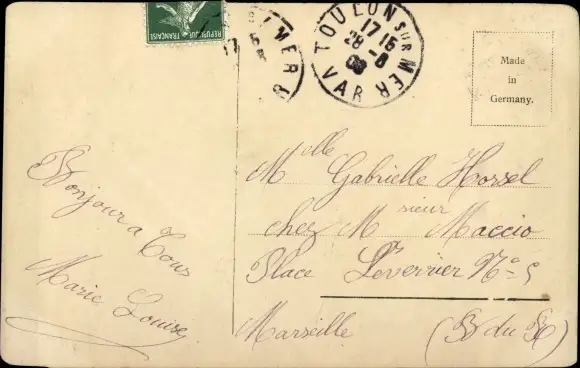 RÉPUBLIQUE FRANÇAISE
MER
17 15
TOULON SUR MER
17 15
28 -8
VAR
Made
in
Germany.
Bonjour a Tous
Marie Louise
Melle Gabrielle Hossel
chez Monsieur Maccio
Place Leverrier No 5
Marseille (B du R)